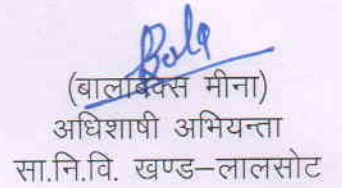 (बालाबक्स मीना)
अधिशाषी अभियन्ता
सा.नि.वि. खण्ड–लालसोट